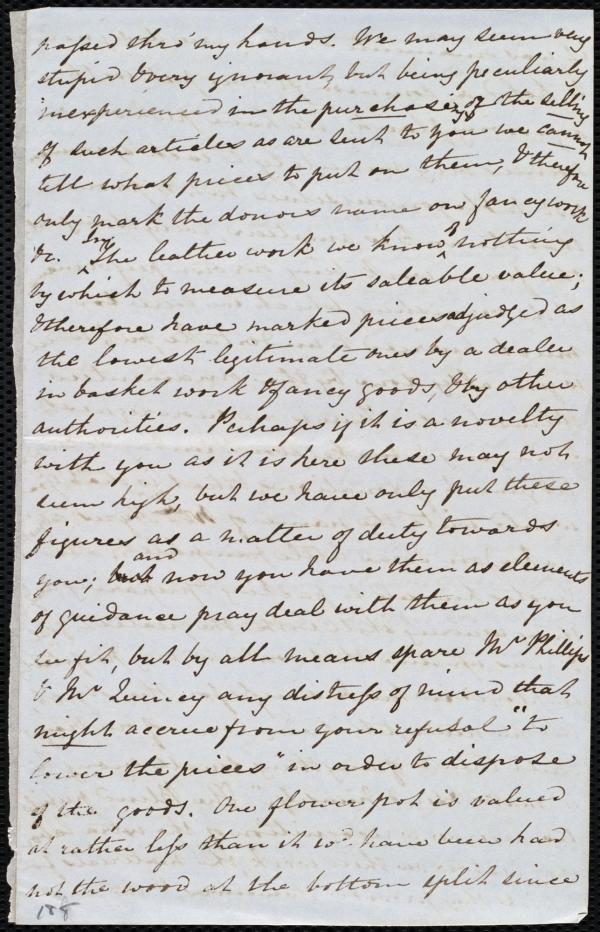 passed thro' my hands. We may seem very
stupid & very ignorant, but being peculiarly
inexperienced in the purchase, or the selling
of such articles as are sent to you we cannot
tell what prices to put on them, & therefore
only mark the donors name on fancy work
&c. In The leather work we know of nothing
by which to measure its saleable value;
& therefore have marked prices adjudged as
the lowest legitimate ones by a dealer
in basket work & fancy goods, & by other
authorities. Perhaps if it is a novelty
with you as it is here these may not
seem high, but we have only put these
figures as a matter of duty towards
you; but and now you have them as elements
of guidance pray deal with them as you
see fit, but by all means spare Mr Phillips
& Mr Quincy any distress of mind that
might accrue from your refusal "to
lower the prices" in order to dispose
of the goods. One flower pot is valued
at rather less than it wd. have been had
not the wood at the bottom split since
188